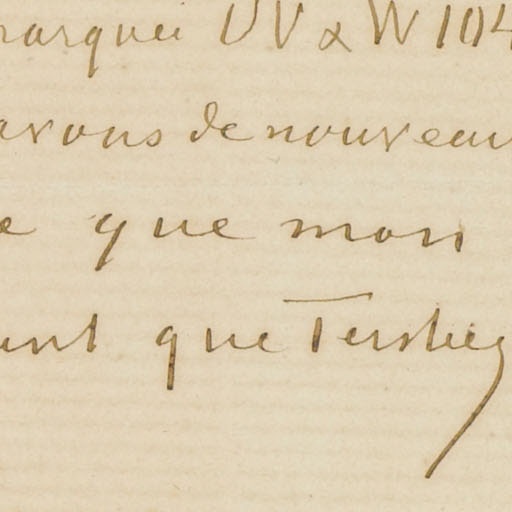 marquée UV & W 104
avons de nouveau
e que mon
ant que Tersteeg